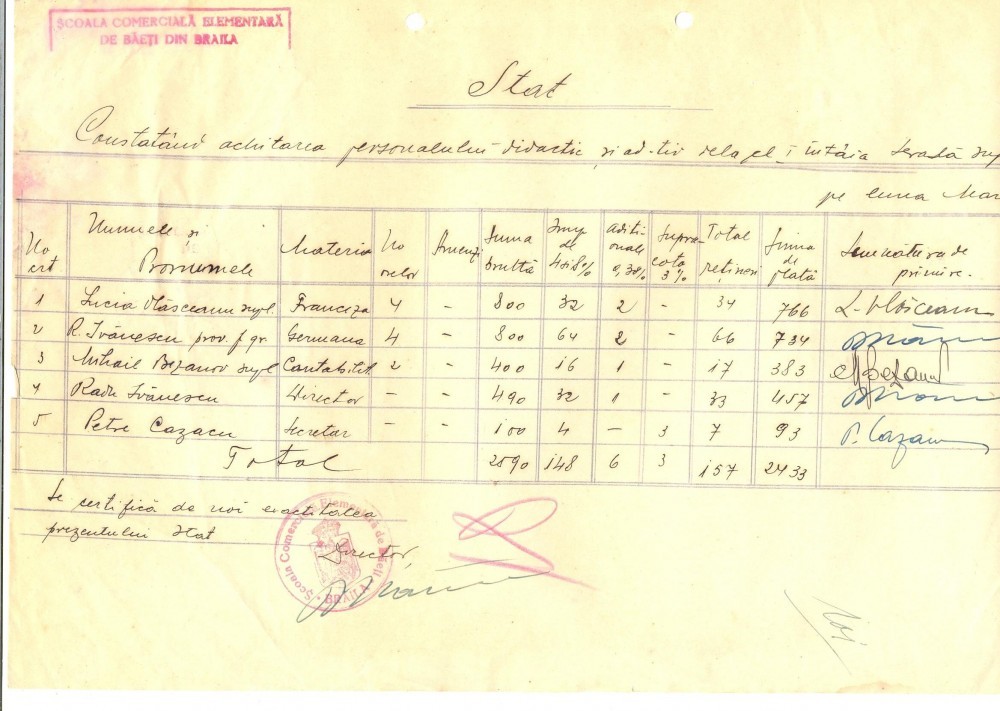 ȘCOALA COMERCIALĂ ELEMENTARĂ
DE BĂEȚI DIN BRAILA
Stat
Constatând achitarea personalului didactic și ad-tiv dela cl. I întâia
pe luna Mar
No crt Numele și Pronumele Materia No orelor Amenzi Suma brută Imp de 4 si 8% aditionale 0,38% supra-cota 3% Total rețineri Suma de plată Semnătura de primire.
1 Lucia Vlăsceanu supl. Franceza 4 - 800 32 2 - 34 766 L. Vlăsceanu
2 R. Ivănescu prov. f gr. Germana 4 - 800 64 2 - 66 734
3 Mihail Bezanov supl Contabilit. 2 - 400 16 1 - 17 383
4 Radu Ivănescu Director - - 490 32 1 - 33 457
5 Petre Cazacu Secretar - - 100 4 - 3 7 93 P. Cazacu
Total 2590 148 6 3 157 2433
Se certifică de noi exactitatea
prezentului stat
Director,
Școala Comercială Elementară de Băeți
BRAILA